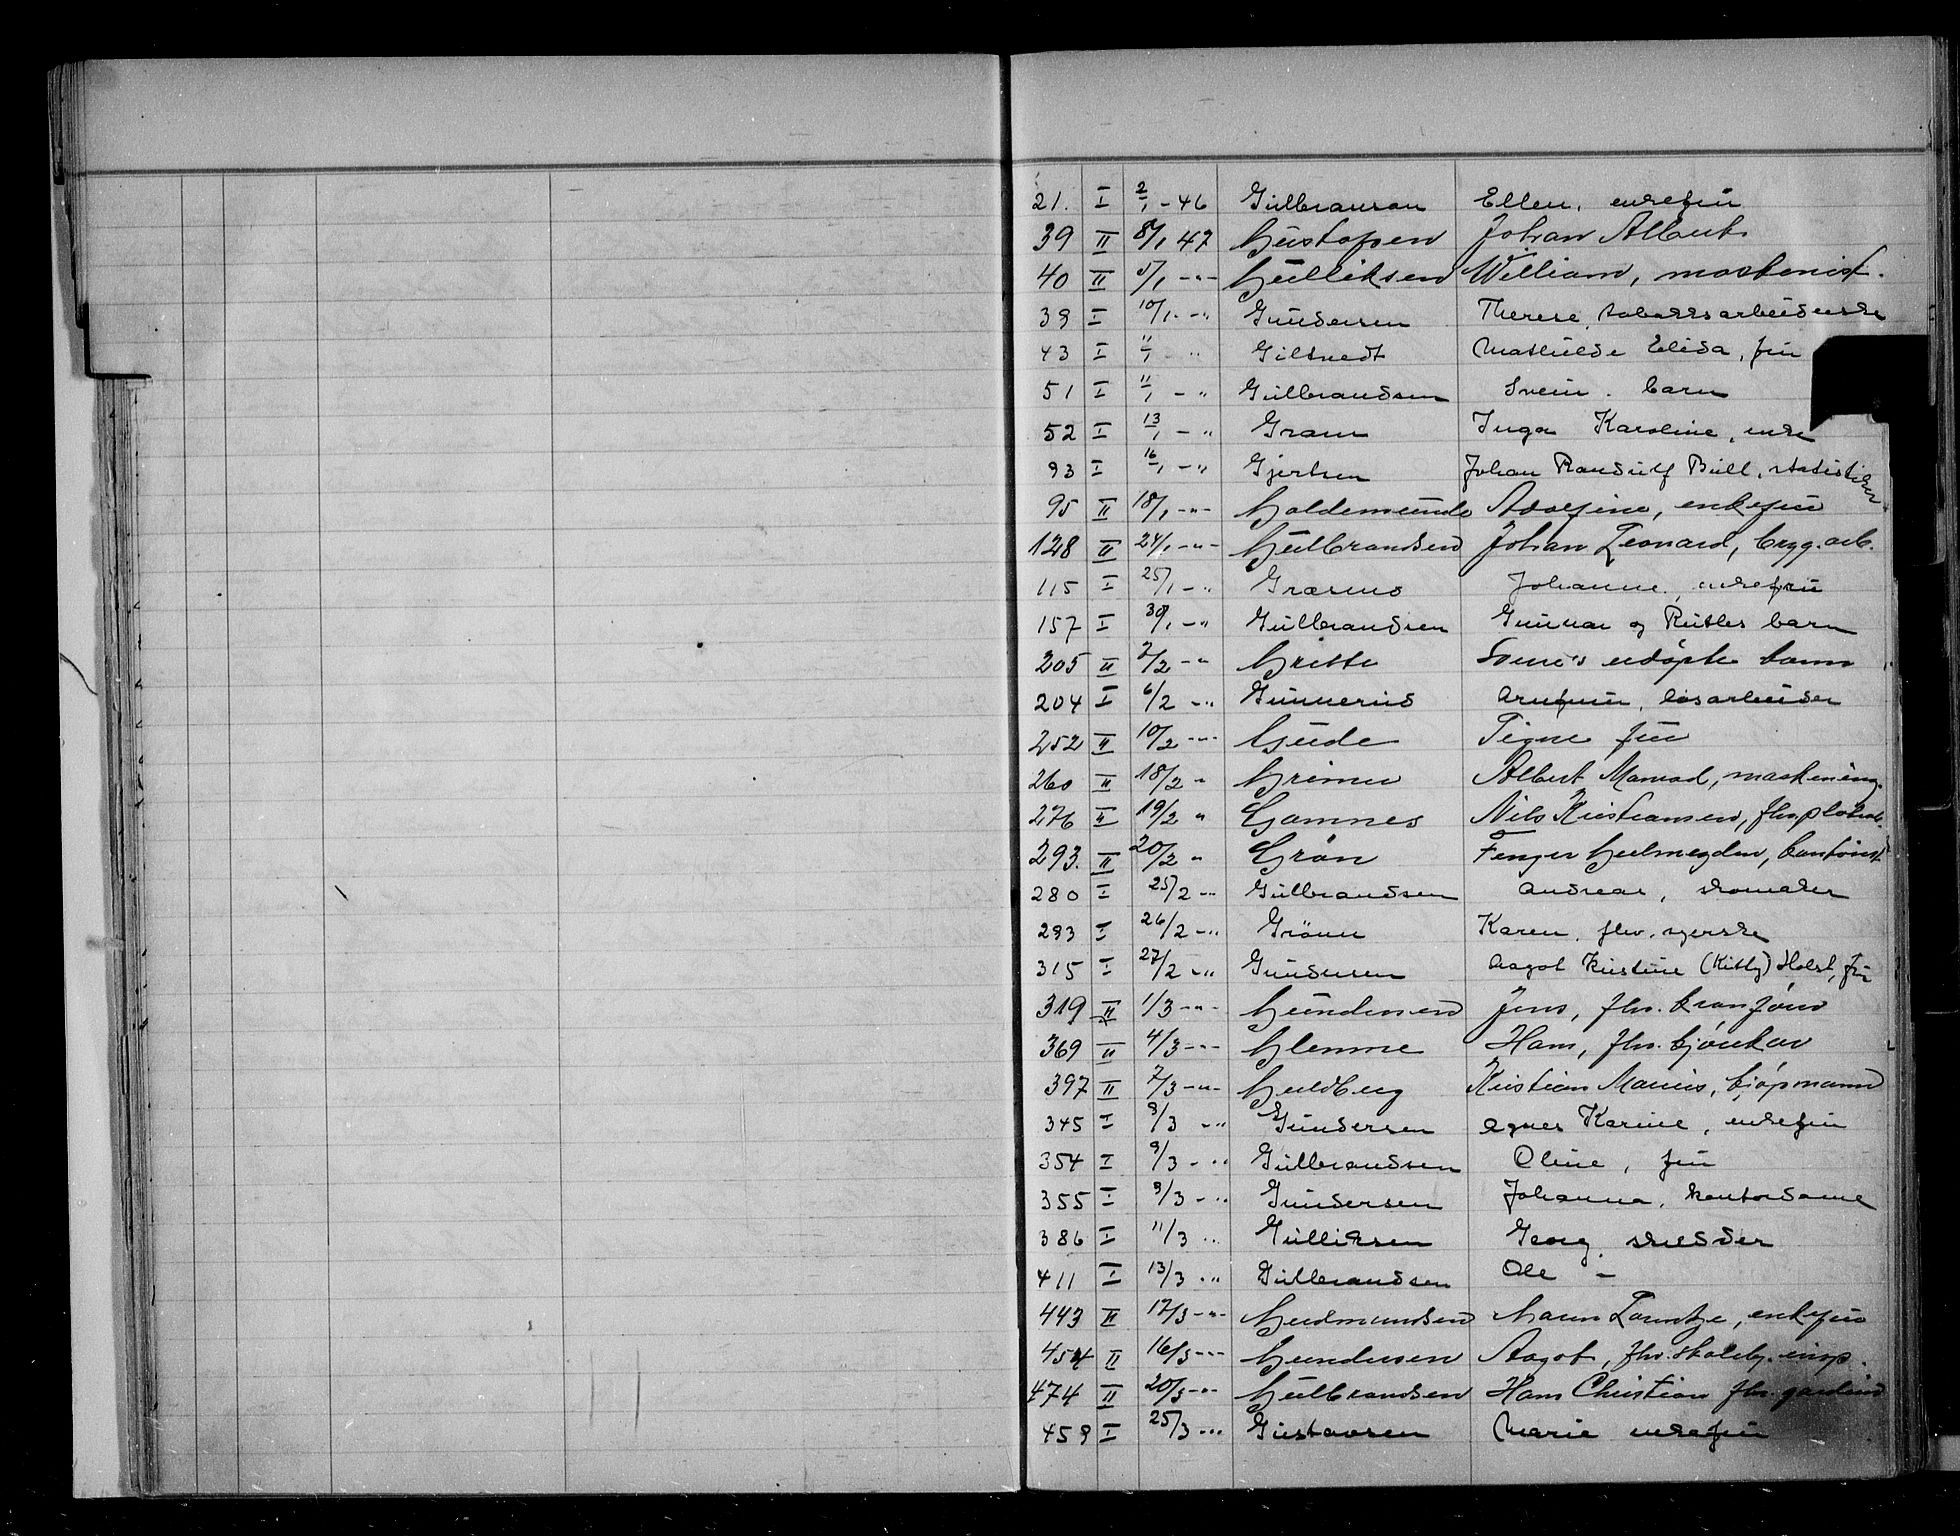 21. I 2/1 - 46 Gulbranson Ellen, enkefru
39 II 8/1 47 Gustafsen Johan Albert
40 II 5/1 -"- Gulliksen William, maskinist.
39 I 10/1 - " Gundersen Therese, tobakksarbeiderske
43 I 11/1 - " Giltvedt Mathilde Elida, fru
51 I 11/1 - " Gulbrandsen Svein. barn
52 I 13/1 - " Gram Inga Karoline, enke
93 I 16/1 - " Gjertsen Johan Randulf Bull, statistiker
95 II 18/1 -"- Goldemunde Adolfine, enkefru
128 II 24/1 -"- Gulbrandsen Johan Leonard, brygg.arb.
115 I 25/1 - " Græsmo Johanne, enkefru
157 I 30/1 - " Gulbrandsen Gunnar og Ruths barn
205 II 2/2 -"- Gritte udøpte barn
204 I 6/2 - " Gunnerius Arnfinn, løsarbeider
252 II 10/2 -"- Gude Signe fru
260 II 18/2 " Grimer Albert Monrad, maskining.
276 II 19/2 " Gamnes Nils Kristiansen, fhv.
293. II 20/2 " Grøn Fenger
280 I 25/2 - " Gulbrandsen Andreas, skomaker
293 I 26/2 - " Grønn Karen, fhv. syerske
315 I 27/2 - " Gundersen Aagot Kristine (Kitty) Holst, fru
319 II 1/3 -"- Gundersen Jens, fhv. kranfører
369 II 4/3 -"- Glenne Hans, fhv.
397 II 7/3 -"- Guldberg Kristian Marius, kjøpmann
345 I 8/3 - " Gundersen Agnes Karine, enkefru
354 I 9/3 - " Gulbrandsen Oline, fru
355 I 9/3 - " Gundersen Johanna, kontordame
386 I 11/3 " Gulliksen Georg, skredder
411 I 13/3 " Gulbrandsen Ole -
443 II 17/3 -"- Gudmundsen Maren enkefru
454 II 16/3 -"- Gundersen Aagot, fhv. insp.
474 II 20/3 -"- Gulbrandsen Hans Christian fhv.
459 I 25/3 -"- Gustavsen Marie enkefru